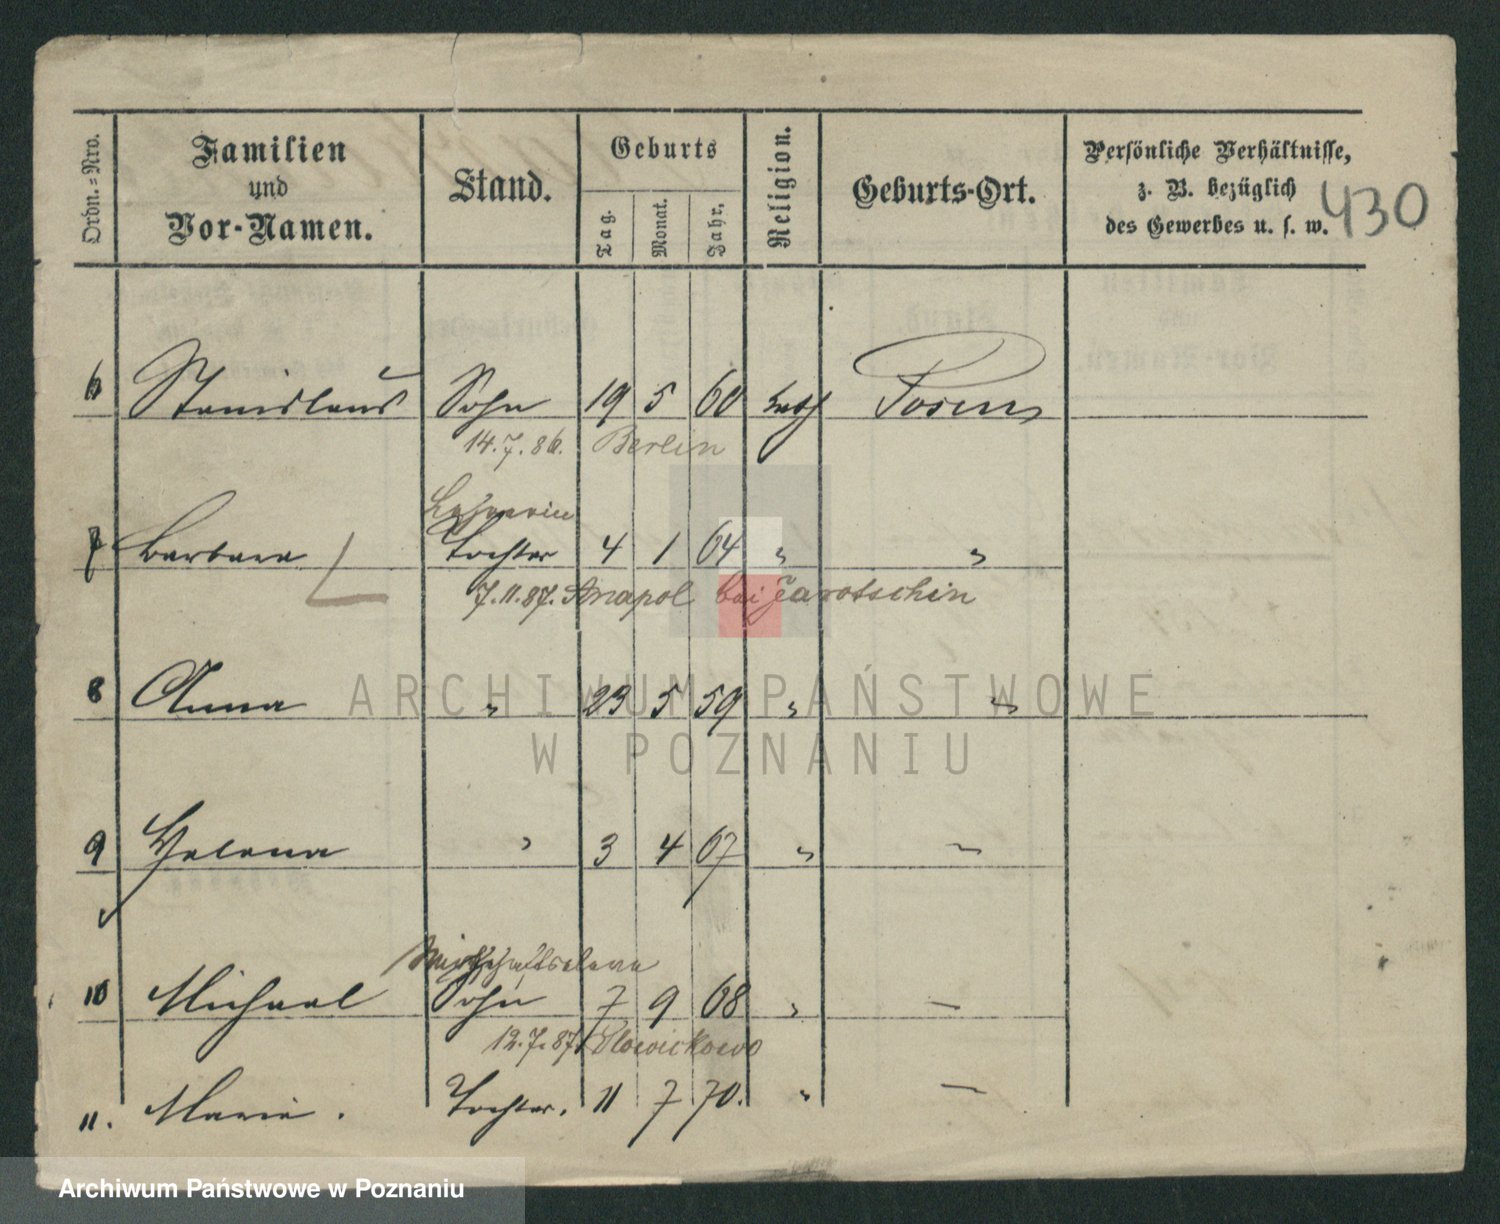 Ordn.=Nro.
Familien
und
Vor-Namen.
Stand.
Geburts
Tag.
Monat.
Jahr.
Religion.
Geburts-Ort.
Persönliche Verhältnisse,
z. B. bezüglich
des Gewerbes u. s. w.
430
6 Stanislaus Sohn 19 5 60 kath Posen
14.7.86. Berlin
Lehrerin
7 Barbara Tochter 4 1 64 " "
7.11.87. Annapol bei Jarotschin
8 Anna " 23 5 59 " "
9 Helena " 3 4 67 " "
Wirthschaftseleve
10 Michael Sohn 7 9 68 " —
12.7.87.
11. Marie. Tochter. 11 7 70. " —
ARCHIWUM PAŃSTWOWE
W POZNANIU
Archiwum Państwowe w Poznaniu